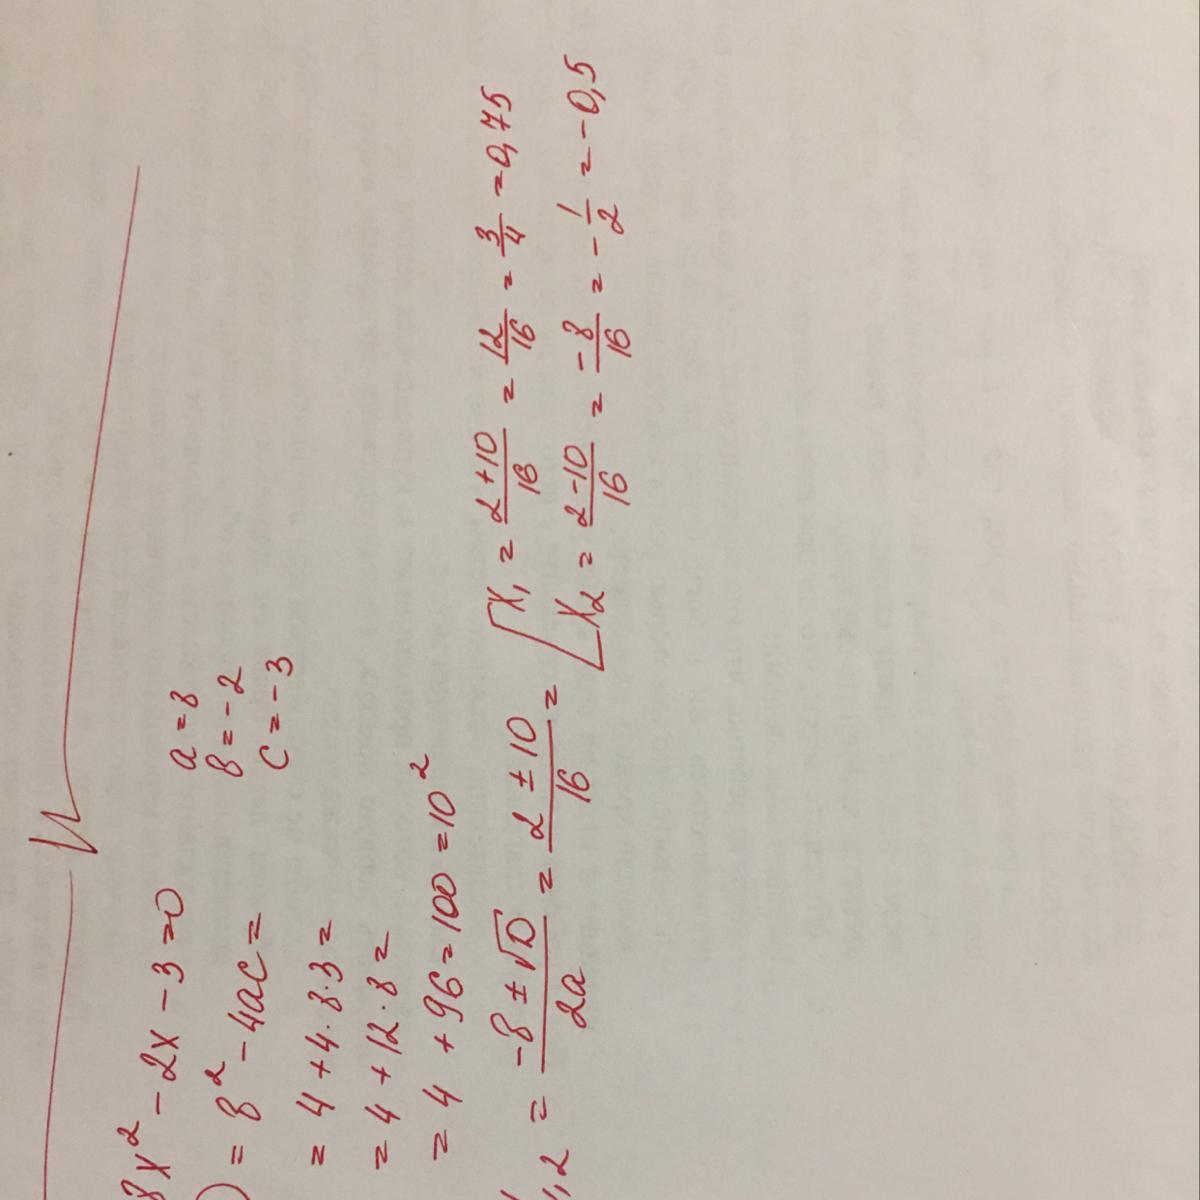 8x² - 2x - 3 = 0
a = 8
) = b² - 4ac =
b = -2
c = -3
= 4 + 4·8·3 =
= 4 + 12·8 =
= 4 + 96 = 100 = 10²
1,2 = (-b ± √D)/(2a) = (2 ± 10)/16 =
[x₁ = (2 + 10)/16 = 12/16 = 3/4 = 0,75
[x₂ = (2 - 10)/16 = -8/16 = -1/2 = -0,5